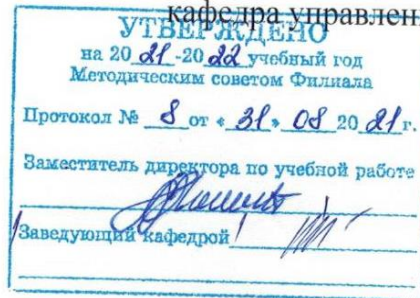 кафедра управлен
УТВЕРЖДЕНО
на 2021-2022 учебный год
Методическим советом Филиала
Протокол № 8 от «31» 08 2021 г.
Заместитель директора по учебной работе
Заведующий кафедрой